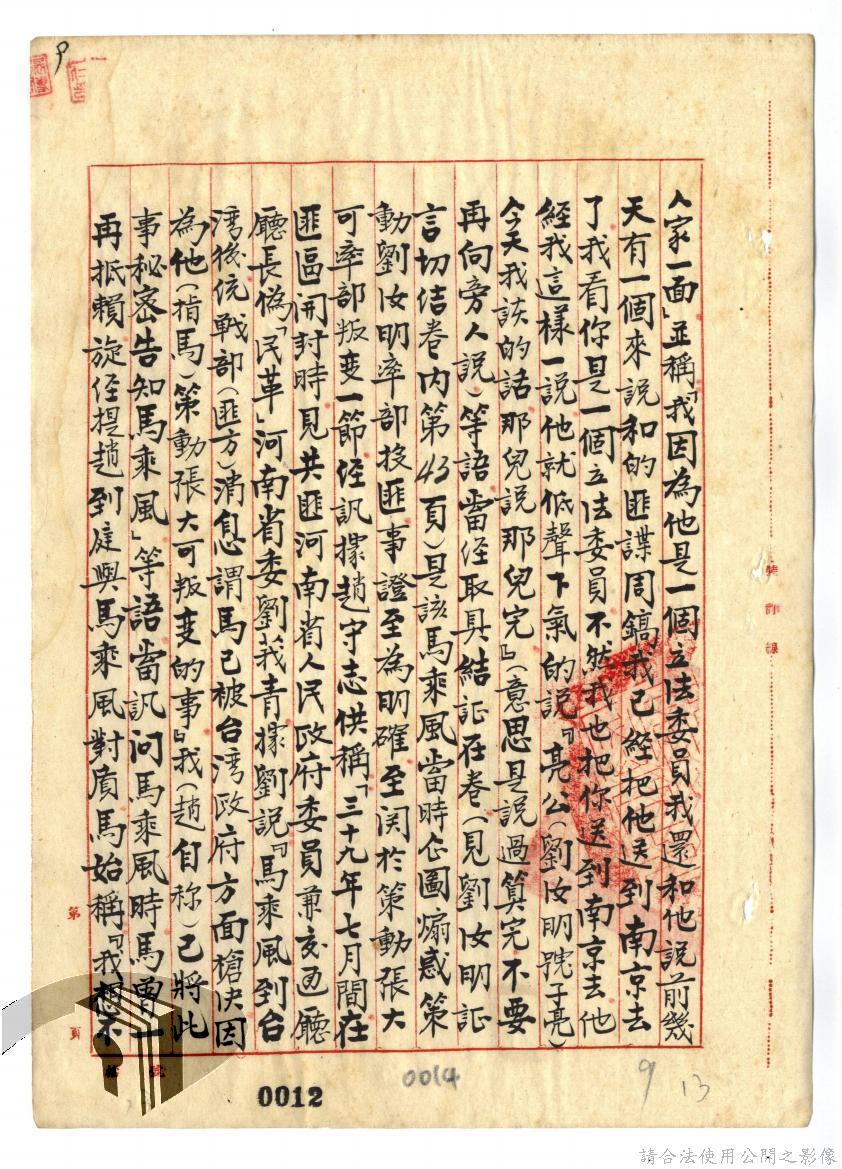 人家一面」並稱「我因為他是一個立法委員我還和他說前幾
天有一個來說和的匪諜周鎬我已經把他送到南京去
了我看你是一個立法委員不然我也把你送到南京去他
經我這樣一說他就低聲下氣的說『亮公(劉汝明號子亮)
今天我談的話那兒說那兒完』(意思是說過算完不要
再向旁人說)等語當經取具結証在卷(見劉汝明証
言切結卷內第43頁)是該馬乘風當時企圖煽惑策
動劉汝明率部投匪事證至為明確至関於策動張大
可率部叛变一節经訊據趙守志供稱「三十九年七月間在
匪區開封時見共匪河南省人民政府委員兼交通廳
廳長偽「民革」河南省委劉莪青據劉說『馬乘風到台
湾後统戰部(匪方)消息謂馬已被台湾政府方面槍决因
為他(指馬)策動張大可叛变的事』我(趙自称)已將此
事秘密告知馬乘風」等語當訊问馬乘風時馬曾一
再抵賴旋经提趙到庭與馬乘風對质馬始稱「我想不
裝
訂
線
第
頁
0012
0014
9
13
請合法使用公開之影像